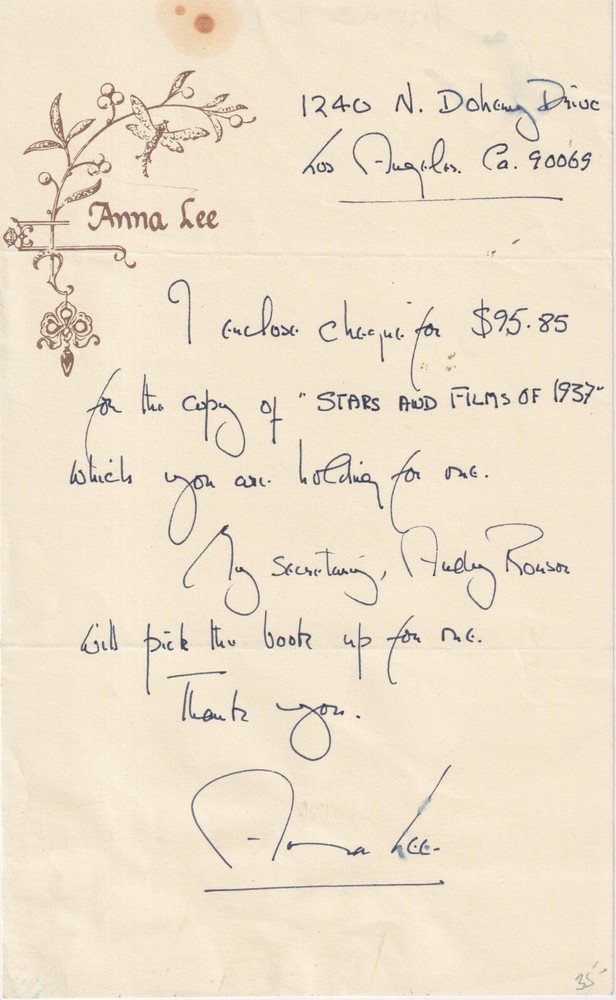 1240 N. Doheny Drive
Los Angeles. Ca. 90069
Anna Lee
I enclose cheque for $95.85
for the copy of "STARS AND FILMS OF 1937"
which you are holding for me.
My secretary, Audrey Ronson
will pick the book up for me.
Thank you.
Anna Lee.
35-